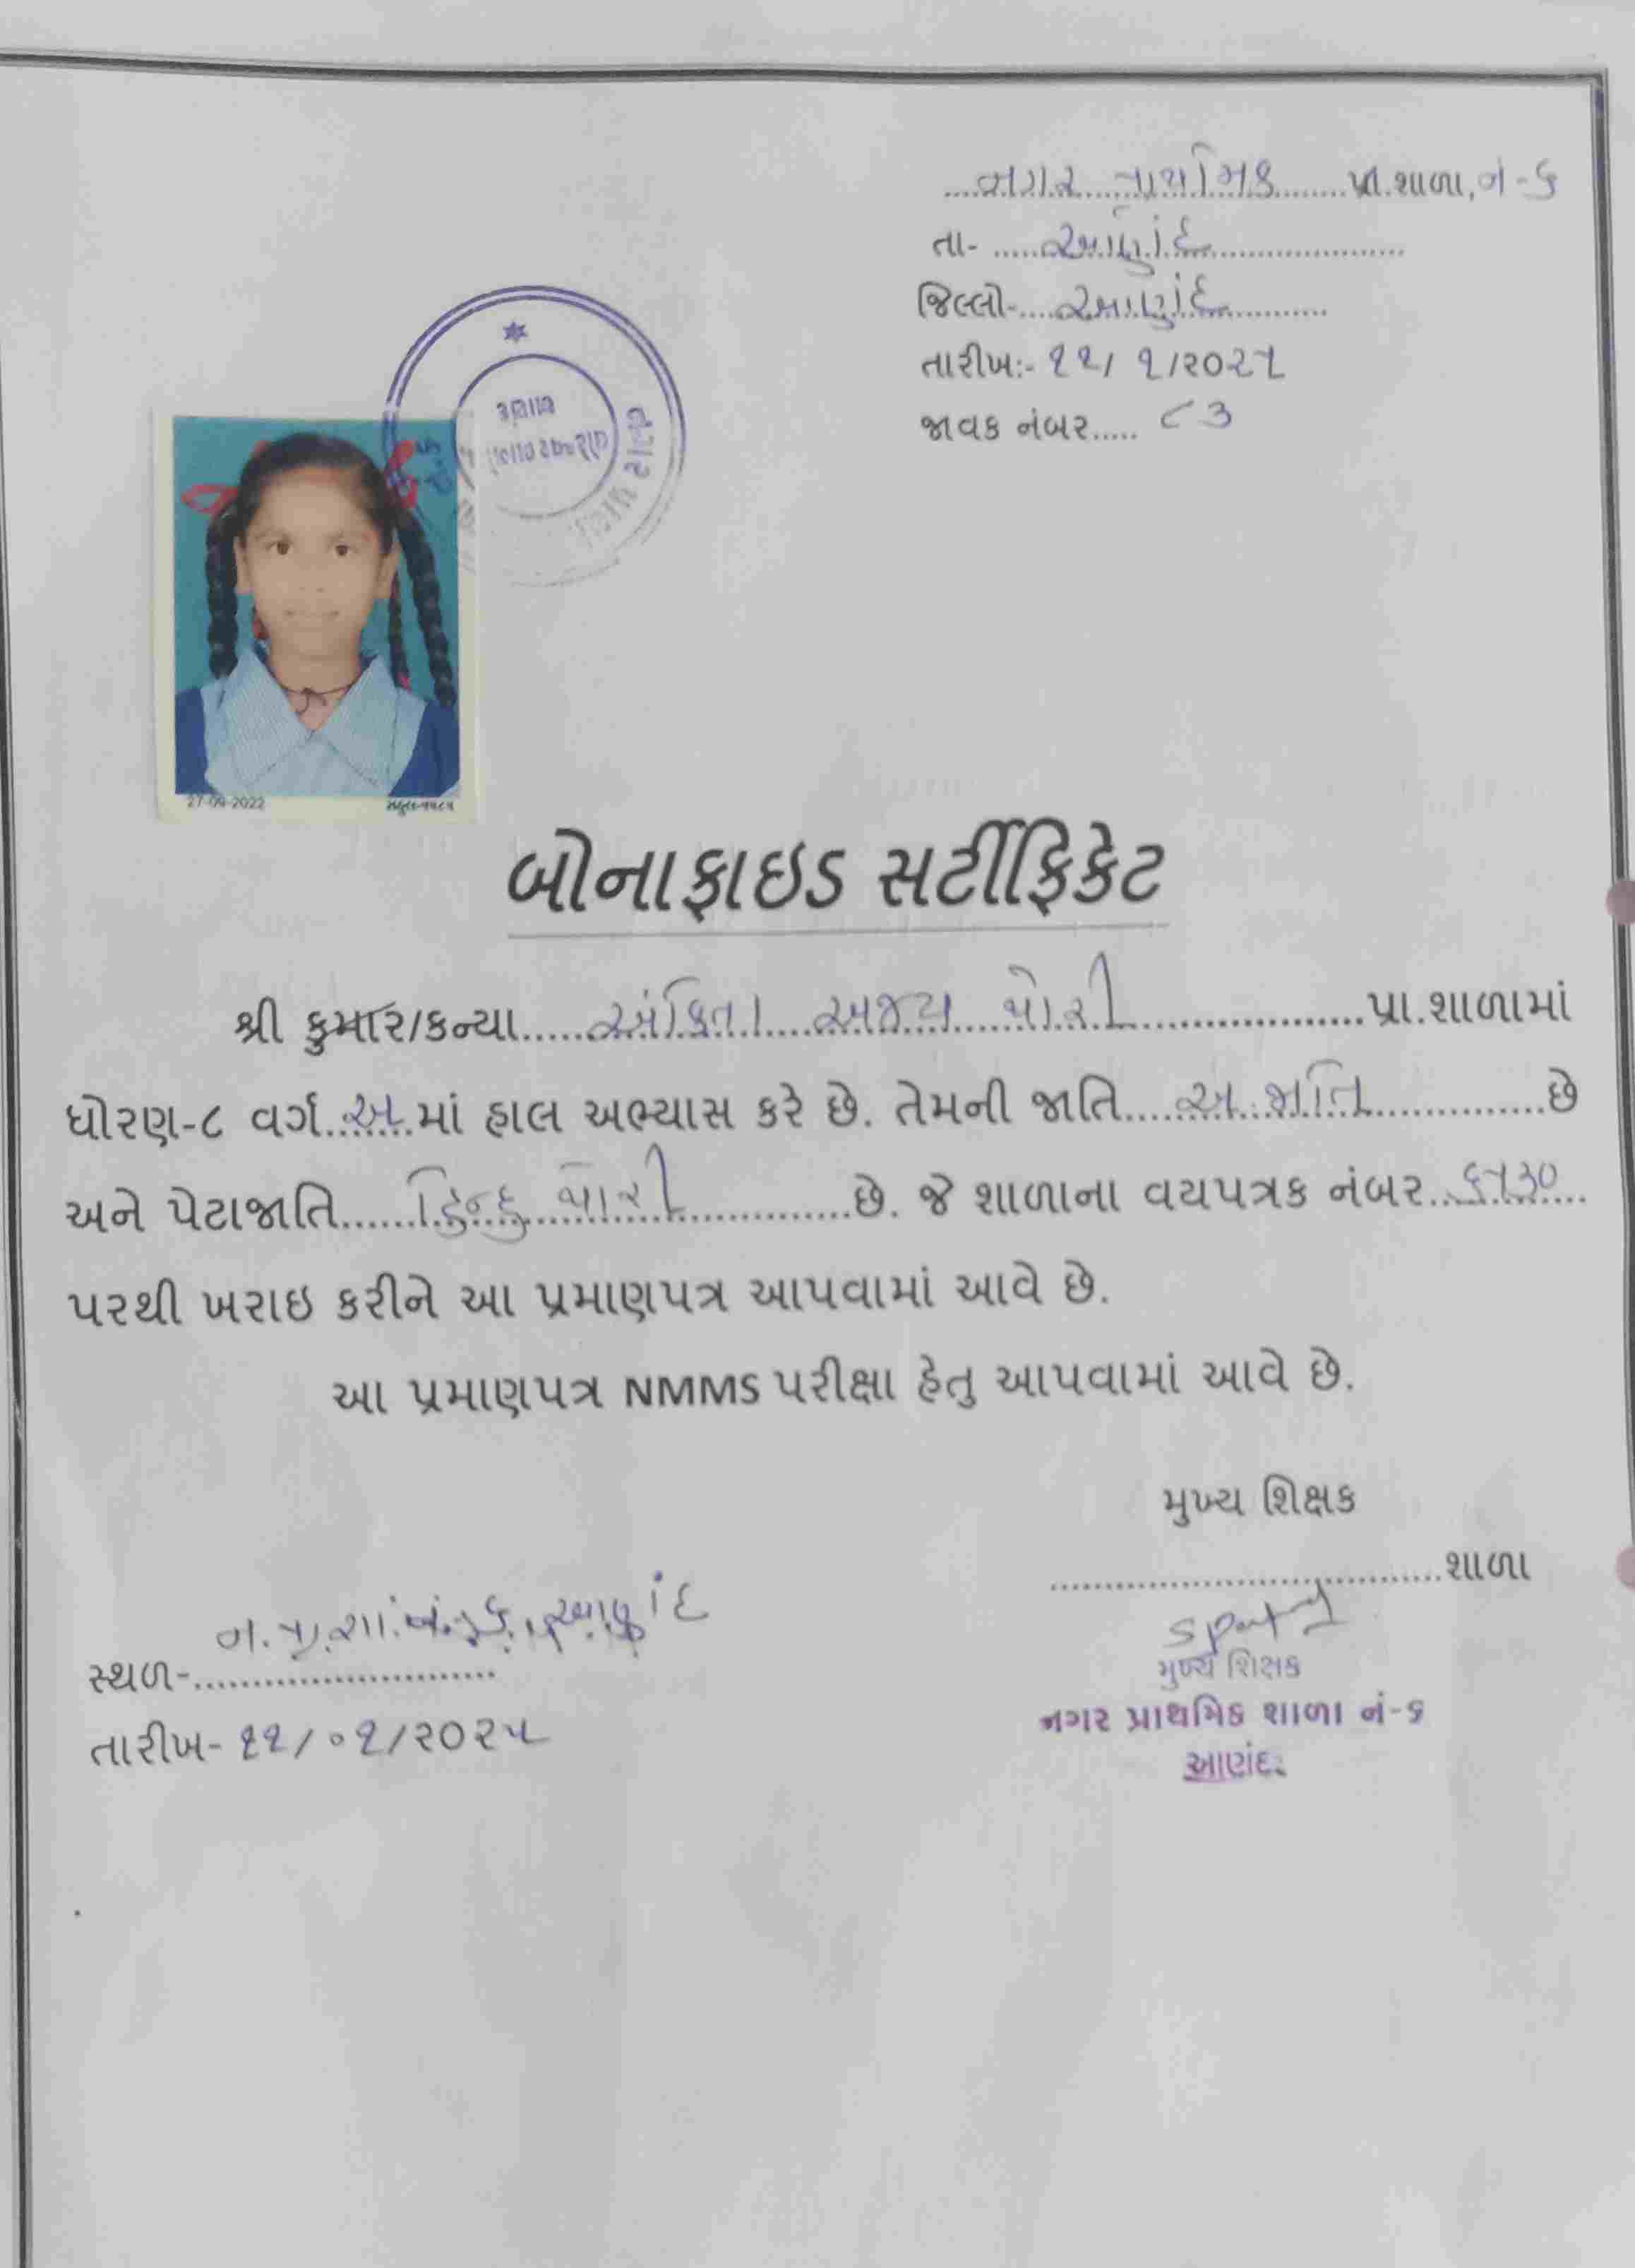 નગર પ્રાથમિક પ્રા.શાળા, નં-૬
તા- આણંદ
જિલ્લો- આણંદ
તારીખ:- ૧૧/ ૧/૨૦૨૫
જાવક નંબર..... ૮૩
આણંદ
27-09-2022
બોનાફાઇડ સર્ટીફિકેટ
શ્રી કુમાર/કન્યા અંકિતા અજય યોરી પ્રા.શાળામાં
ધોરણ-૮ વર્ગ અ માં હાલ અભ્યાસ કરે છે. તેમની જાતિ અ.જાતિ છે
અને પેટાજાતિ હિન્દુ છે. જે શાળાના વયપત્રક નંબર ૬૫૩૦
પરથી ખરાઇ કરીને આ પ્રમાણપત્ર આપવામાં આવે છે.
આ પ્રમાણપત્ર NMMS પરીક્ષા હેતુ આપવામાં આવે છે.
મુખ્ય શિક્ષક
શાળા
સ્થળ- ન.પ્રા.શા.નં.૬, આણંદ
મુખ્ય શિક્ષક
નગર પ્રાથમિક શાળા નં-૬
તારીખ- ૧૧/૦૧/૨૦૨૫
આણંદ.